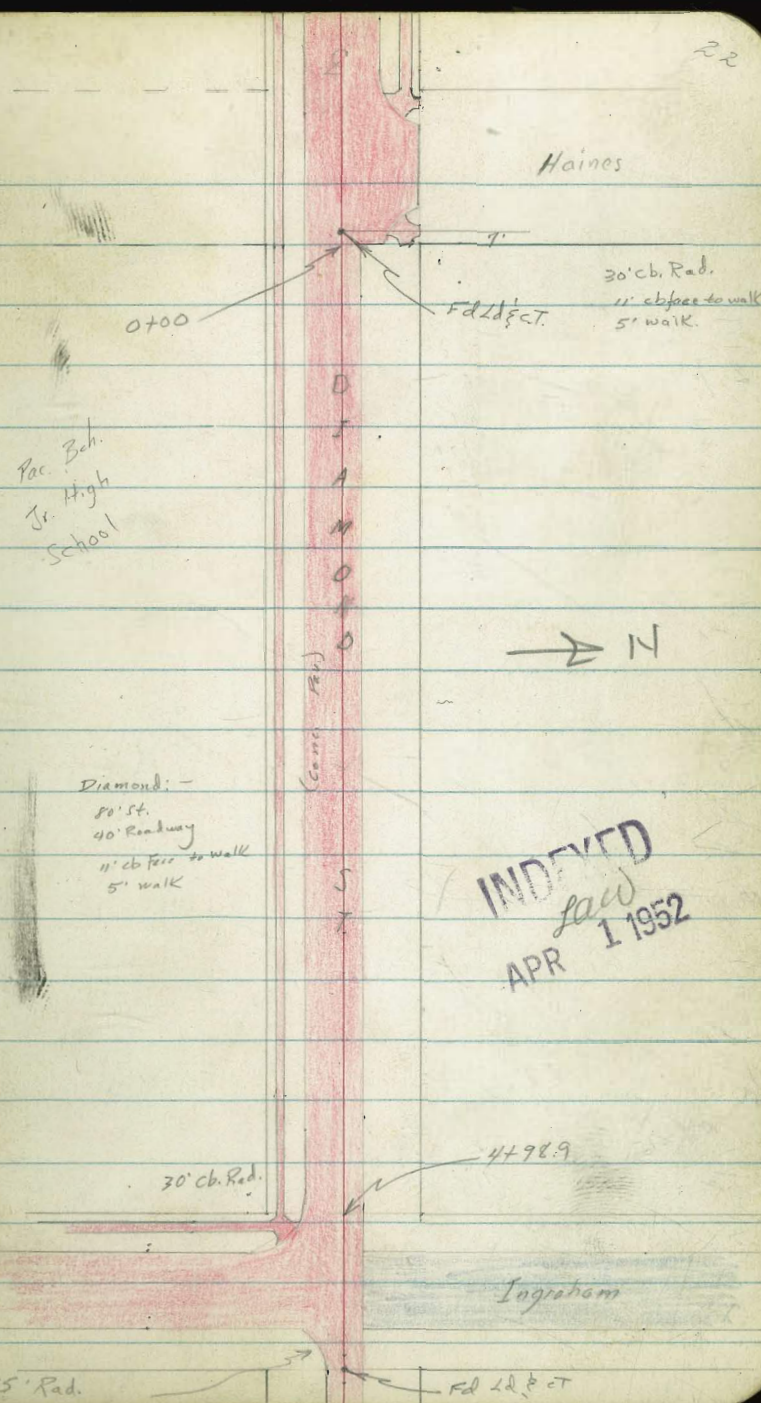 22
Haines
7'
30' cb. Rad.
11' cb face to walk
5' walk.
0+00
Fd Ld & cT.
DIAMOND
Pac. Bch.
Jr. High
School
N
(Conc. Pav.)
Diamond: -
80' St.
40' Roadway
11' cb Face to walk
5' walk
INDEXED
Law
APR 1 1952
4+98.9
30' cb. Rad.
Ingraham
5' Rad.
Fd Ld & cT